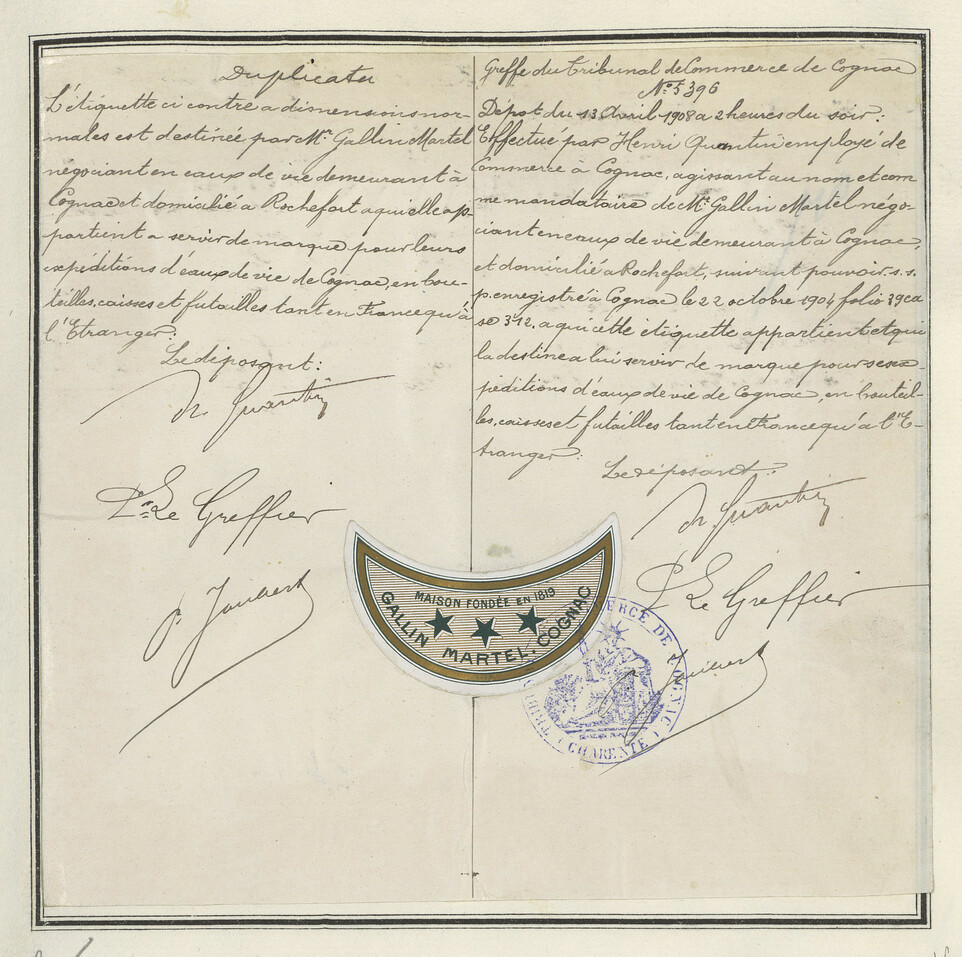 Duplicata
L'étiquette ci contre a dismensions nor-
males est destinée par Mr. Gallin Martel
négociant en eaux de vie demeurant à
Cognac et domicilié a Rochefort a qui elle ap-
partient a servir de marque pour leurs
expéditions d'eaux de vie de Cognac, en bou-
teilles, caisses et futailles tant en France qu'à
l'Etranger.
Le déposant:
h. Quantin
Pr. Le Greffier
p. Joubert
Greffe du Tribunal de Commerce de Cognac
No. 5396
Dépot du 13 Avril 1908 a 2 heures du soir:
Effectué par Henri Quantin employé de
Commerce à Cognac, agissant au nom et com
me mandataire de Mr. Gallin Martel négo-
ciant en eaux de vie demeurant à Cognac,
et domicilié a Rochefort, suivant pouvoir s.s.
p. enregistré à Cognac le 22 octobre 1904 folio 39 ca
se 312. a qui cette étiquette appartient et qui
la destine a lui servir de marque pour ses ex
péditions d'eaux de vie de Cognac, en bouteil-
les, caisses et futailles tant en France qu'à l'E-
tranger:
Le déposant:
h. Quantin
P. Le Greffier
p. Joubert
MAISON FONDÉE EN 1819
GALLIN MARTEL. COGNAC
COGNAC
CHARENTE